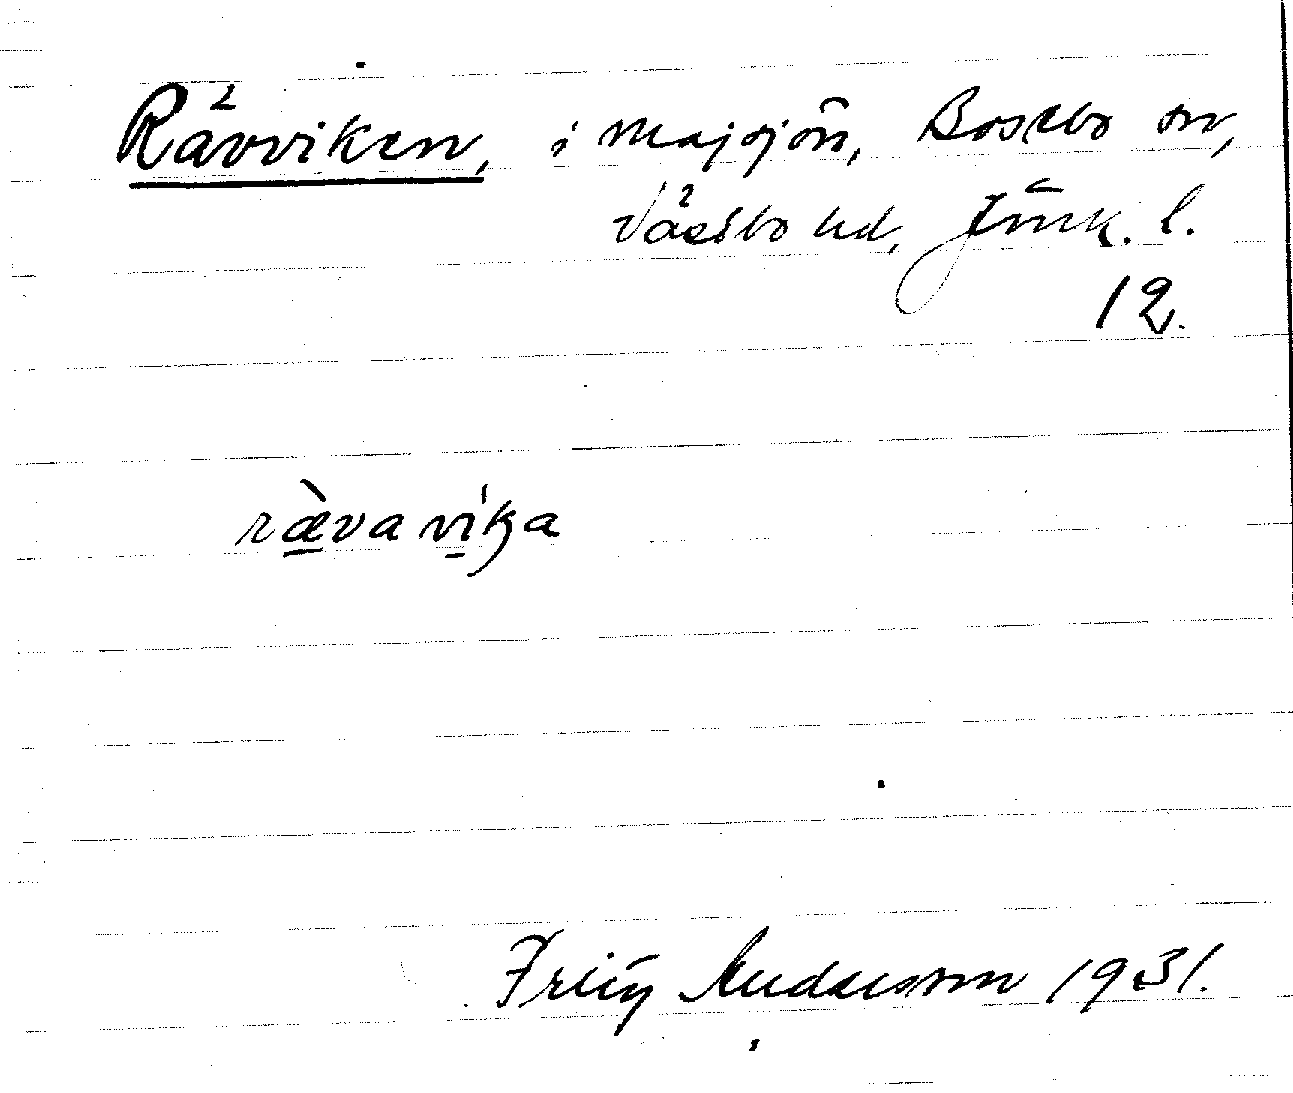 Rävviken, i Majsjön, Bosebo sn,
Västbo hd, Jönk. l.
12.
ræ̀va víka
Frity Andersson 1931.